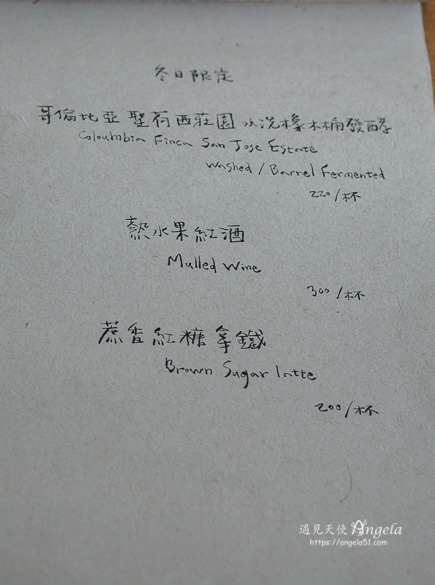 冬日限定
哥倫比亞 聖荷西莊園 水洗橡木桶發酵
Coloumbia Finca San Jose Estate
Washed / Barrel Fermented
220/杯
熱水果紅酒
Mulled Wine
300/杯
蔗香紅糖拿鐵
Brown Sugar latte
200/杯
遇見天使 Angela
https://angela51.com